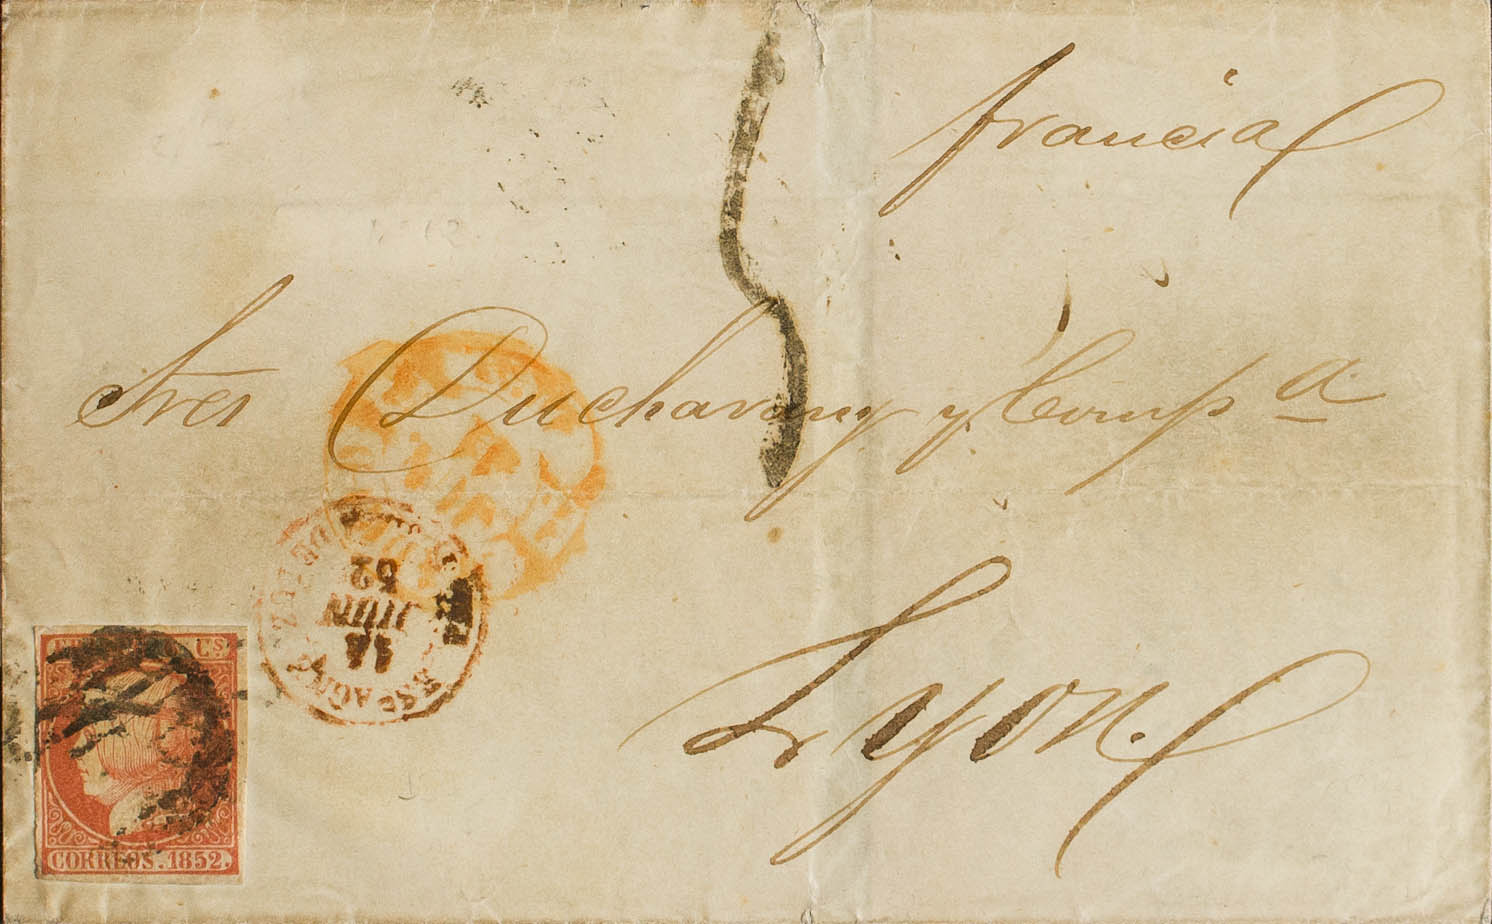 francia
Sres Ducharmy y Compª
Lyon.
ESPAGNE
14
JUIN
52
CORREOS.1852.